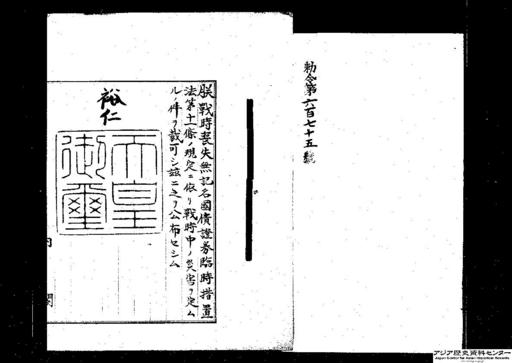 勅令第六百七十五號
朕戰時喪失無記名國債證券臨時措置
法第十一條ノ規定ニ依リ戰時中ノ災害ヲ定ム
ルノ件ヲ裁可シ茲ニ之ヲ公布セシム
裕仁
天皇
御璽
內閣
アジア歴史資料センター
Japan Center for Asian Historical Records